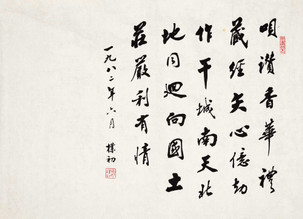 呗讚香華禮
藏經矢心億劫
作干城南天北
地同迴向國土
莊嚴利有情
一九八二年六月
樸初